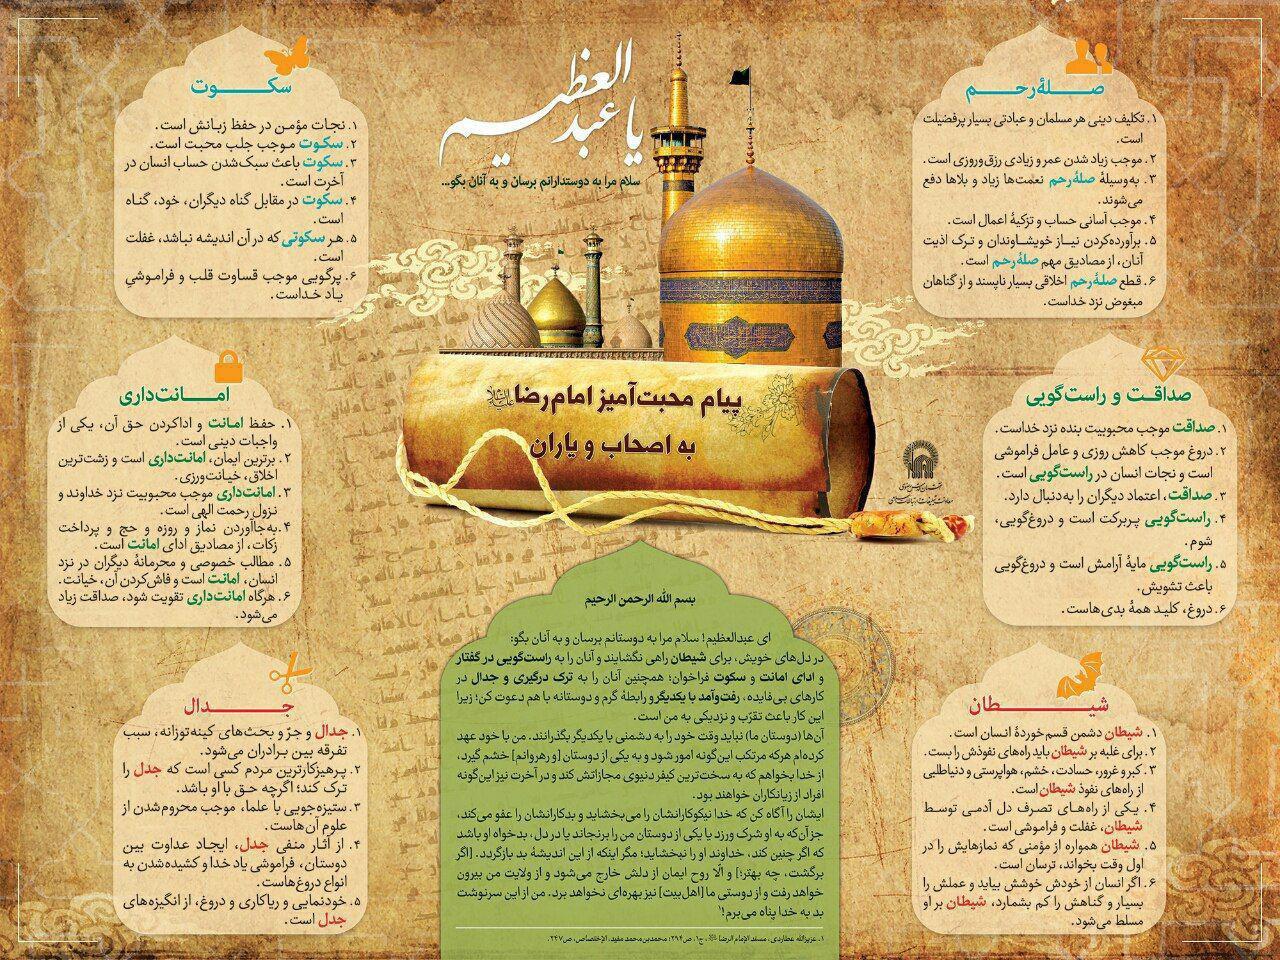 یا عبدالعظیم
سلام مرا به دوستدارانم برسان و به آنان بگو...
پیام محبت‌آمیز امام رضا علیه‌السلام
به اصحاب و یاران
صلهٔ رحم
۱. تکلیف دینی هر مسلمان و عبادتی بسیار پرفضیلت
است.
۲. موجب زیاد شدن عمر و زیادی رزق‌وروزی است.
۳. به‌وسیلهٔ صلهٔ‌رحم نعمت‌ها زیاد و بلاها دفع
می‌شوند.
۴. موجب آسانی حساب و تزکیهٔ اعمال است.
۵. برآورده‌کردن نیاز خویشاوندان و ترک اذیت
آنان، از مصادیق مهم صلهٔ‌رحم است.
۶. قطع صلهٔ‌رحم اخلاقی بسیار ناپسند و از گناهان
مبغوض نزد خداست.
صداقت و راست‌گویی
۱. صداقت موجب محبوبیت بنده نزد خداست.
۲. دروغ موجب کاهش روزی و عامل فراموشی
است و نجات انسان در راست‌گویی است.
۳. صداقت، اعتماد دیگران را به‌دنبال دارد.
۴. راست‌گویی پربرکت است و دروغ‌گویی،
شوم.
۵. راست‌گویی مایهٔ آرامش است و دروغ‌گویی
باعث تشویش.
۶. دروغ، کلید همهٔ بدی‌هاست.
شیطان
۱. شیطان دشمن قسم‌خوردهٔ انسان است.
۲. برای غلبه بر شیطان باید راه‌های نفوذش را بست.
۳. کبر و غرور، حسادت، خشم، هواپرستی و دنیاطلبی
از راه‌های نفوذ شیطان است.
۴. یکی از راه‌های تصرف دل آدمی توسط
شیطان، غفلت و فراموشی است.
۵. شیطان همواره از مؤمنی که نمازهایش را در
اول وقت بخواند، ترسان است.
۶. اگر انسان از خودش خوشش بیاید و عملش را
بسیار و گناهش را کم بشمارد، شیطان بر او
مسلط می‌شود.
سکوت
۱. نجات مؤمن در حفظ زبانش است.
۲. سکوت موجب جلب محبت است.
۳. سکوت باعث سبک‌شدن حساب انسان در
آخرت است.
۴. سکوت در مقابل گناه دیگران، خود، گناه
است.
۵. هر سکوتی که در آن اندیشه نباشد، غفلت
است.
۶. پرگویی موجب قساوت قلب و فراموشیِ
یاد خداست.
امانت‌داری
۱. حفظ امانت و اداکردن حق آن، یکی از
واجبات دینی است.
۲. برترین ایمان، امانت‌داری است و زشت‌ترین
اخلاق، خیانت‌ورزی.
۳. امانت‌داری موجب محبوبیت نزد خداوند و
نزول رحمت الهی است.
۴. به‌جاآوردن نماز و روزه و حج و پرداخت
زکات، از مصادیق ادای امانت است.
۵. مطالب خصوصی و محرمانهٔ دیگران در نزد
انسان، امانت است و فاش‌کردن آن، خیانت.
۶. هرگاه امانت‌داری تقویت شود، صداقت زیاد
می‌شود.
جدال
۱. جدال و جرّ و بحث‌های کینه‌توزانه، سبب
تفرقه بین برادران می‌شود.
۲. پرهیزکارترین مردم کسی است که جدل را
ترک کند؛ اگرچه حق با او باشد.
۳. ستیزه‌جویی با علما، موجب محروم‌شدن از
علوم آن‌هاست.
۴. از آثار منفی جدل، ایجاد عداوت بین
دوستان، فراموشی یاد خدا و کشیده‌شدن به
انواع دروغ‌هاست.
۵. خودنمایی و ریاکاری و دروغ، از انگیزه‌های
جدل است.
بسم الله الرحمن الرحیم
ای عبدالعظیم! سلام مرا به دوستانم برسان و به آنان بگو:
در دل‌های خویش، برای شیطان راهی نگشایند و آنان را به راست‌گویی در گفتار
و ادای امانت و سکوت فراخوان؛ همچنین آنان را به ترک درگیری و جدال در
کارهای بی‌فایده، رفت‌وآمد با یکدیگر و رابطهٔ گرم و دوستانه با هم دعوت کن؛ زیرا
این کار باعث تقرّب و نزدیکی به من است.
آن‌ها (دوستان ما) نباید وقت خود را به دشمنی با یکدیگر بگذرانند. من با خود عهد
کرده‌ام هرکه مرتکب این‌گونه امور شود و به یکی از دوستان [و رهروانم] خشم گیرد،
از خدا بخواهم که به سخت‌ترین کیفر دنیوی مجازاتش کند و در آخرت نیز این‌گونه
افراد از زیانکاران خواهند بود.
ایشان را آگاه کن که خدا نیکوکارانشان را می‌بخشاید و بدکارانشان را عفو می‌کند،
جز آن‌که به او شرک ورزد یا یکی از دوستان من را برنجاند یا در دل، بدخواه او باشد
که اگر چنین کند، خداوند او را نبخشاید؛ مگر اینکه از این اندیشهٔ بد بازگردد. [اگر
برگشت، چه بهتر؛] و الّا روح ایمان از دلش خارج می‌شود و از ولایت من بیرون
خواهد رفت و از دوستی ما [اهل‌بیت] نیز بهره‌ای نخواهد برد. من از این سرنوشت
بد به خدا پناه می‌برم!۱
۱. عزیزالله عطاردی، مسند الإمام الرضا، ج۱، ص۲۹۴؛ محمدبن‌محمد مفید، الإختصاص، ص۲۴۷.